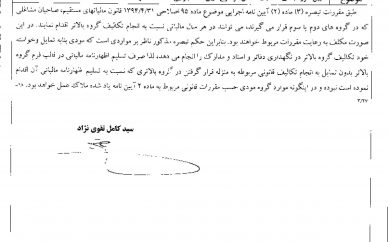 طبق مقررات تبصره (۳) ماده (۲) آیین نامه اجرایی موضوع ماده ۹۵ اصلاحی ۱۳۹۴/۴/۳۱ قانون مالیاتهای مستقیم، صاحبان مشاغلی
که در گروه های دوم یا سوم قرار می گیرند، می توانند در هر سال مالیاتی نسبت به انجام تکالیف گروه بالاتر اقدام نمایند. در این
صورت مکلف به رعایت مقررات مربوط خواهند بود. بنابراین حکم تبصره مذکور ناظر بر مواردی است که مودی بنابه تمایل و خواسته
خود تکالیف گروه بالاتر در نگهداری دفاتر و اسناد و مدارک را انجام می دهد، لذا صرف تسلیم اظهارنامه مالیاتی در قالب فرم گروه
بالاتر بدون تمایل به انجام تکالیف قانونی مربوطه به منزله قرار گرفتن در گروه بالاتری که نسبت به تسلیم اظهارنامه مالیاتی آن اقدام
نموده است نبوده و در اینگونه موارد گروه مودی حسب مقررات قانونی مربوط به ماده ۲ آیین نامه یاد شده ملاک عمل خواهد بود.
۳/۲۷
سید کامل تقوی نژاد